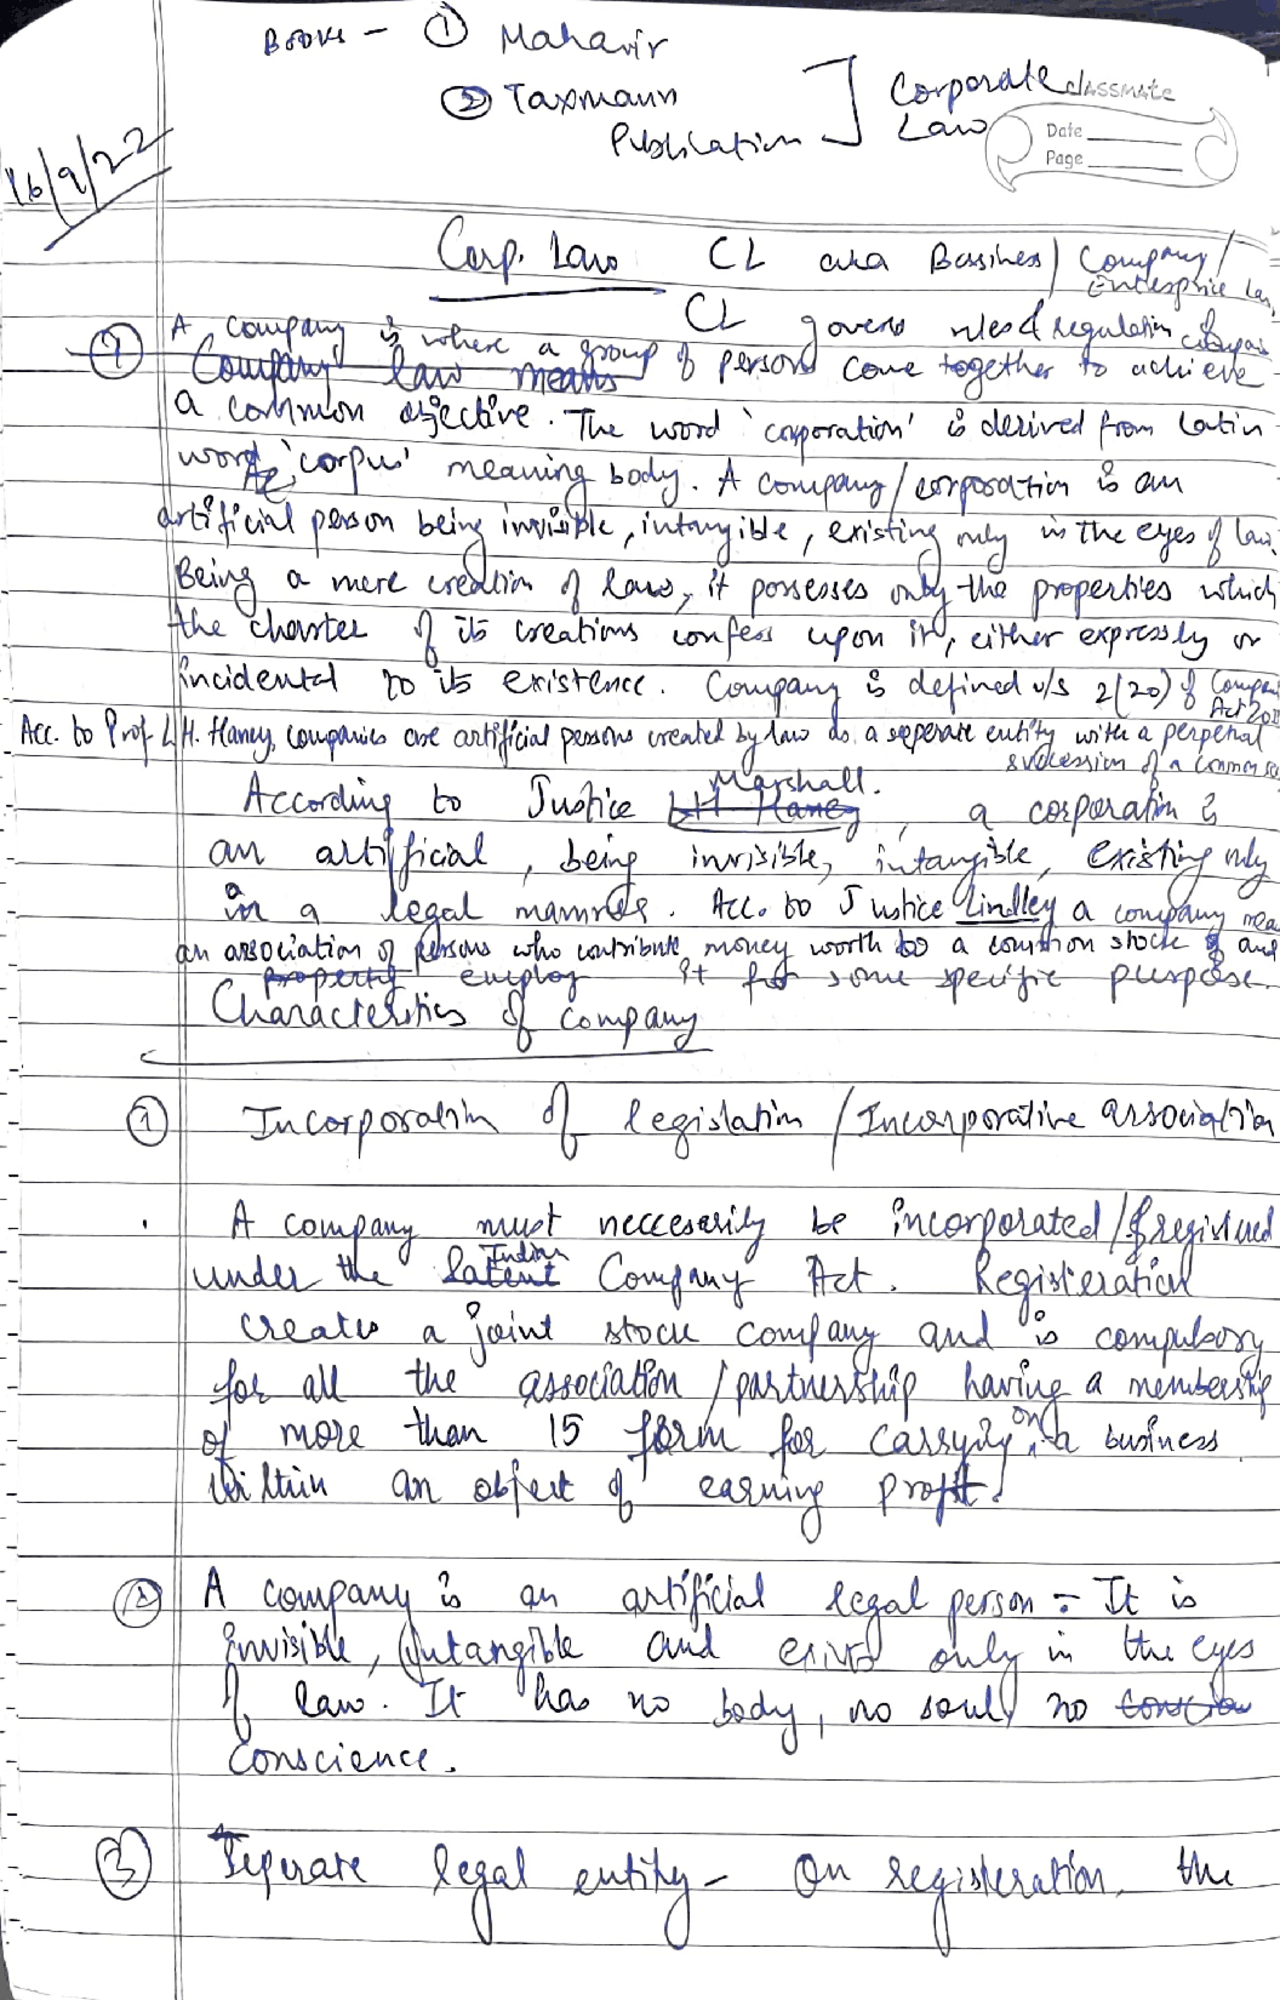 Books - ① Mahavir
② Taxmann
Publication ] Corporate
Law
classmate
Date
Page
16/9/22
Corp. Law CL aka Bussiness/ Company/
Enterprice Law
CL governs rules & regulation of
① A company is where a group of persons come together to achieve
Company law means
a common objective. The word 'corporation' is derived from Latin
word 'corpus' meaning body. A company/corporation is an
artificial person being invisible, intangible, existing only in the eyes of law.
Being a mere creation of law, it possesses only the properties which
the charter of its creations confess upon it, either expressly or
incidental to its existence. Company is defined u/s 2(20) of Company
Act
Acc. to Prof L.H. Haney, companies are artificial persons created by law as a seperate entity with a perpetual
succession of a common
According to Justice LH Haney Marshall. , a corporation is
an artificial, being invisible, intangible, existing only
in a legal manner. Acc. to Justice Lindley a company
an association of persons who contribute money worth to a common stock and
property employ it for some specific purpose.
Characteristics of company
① Incorporation of legislation / Incorporative association
A company must neccesarily be incorporated/registered
under the Latent Indian Company Act. Registeration
creates a joint stock company and is compulsory
for all the association/partnership having a membership
of more than 15 form for carrying on a business
within an object of earning profit.
② A company is an artificial legal person :- It is
invisible, intangible and exists only in the eyes
of law. It has no body, no soul, no
conscience.
③ Seperate legal entity - On registeration, the